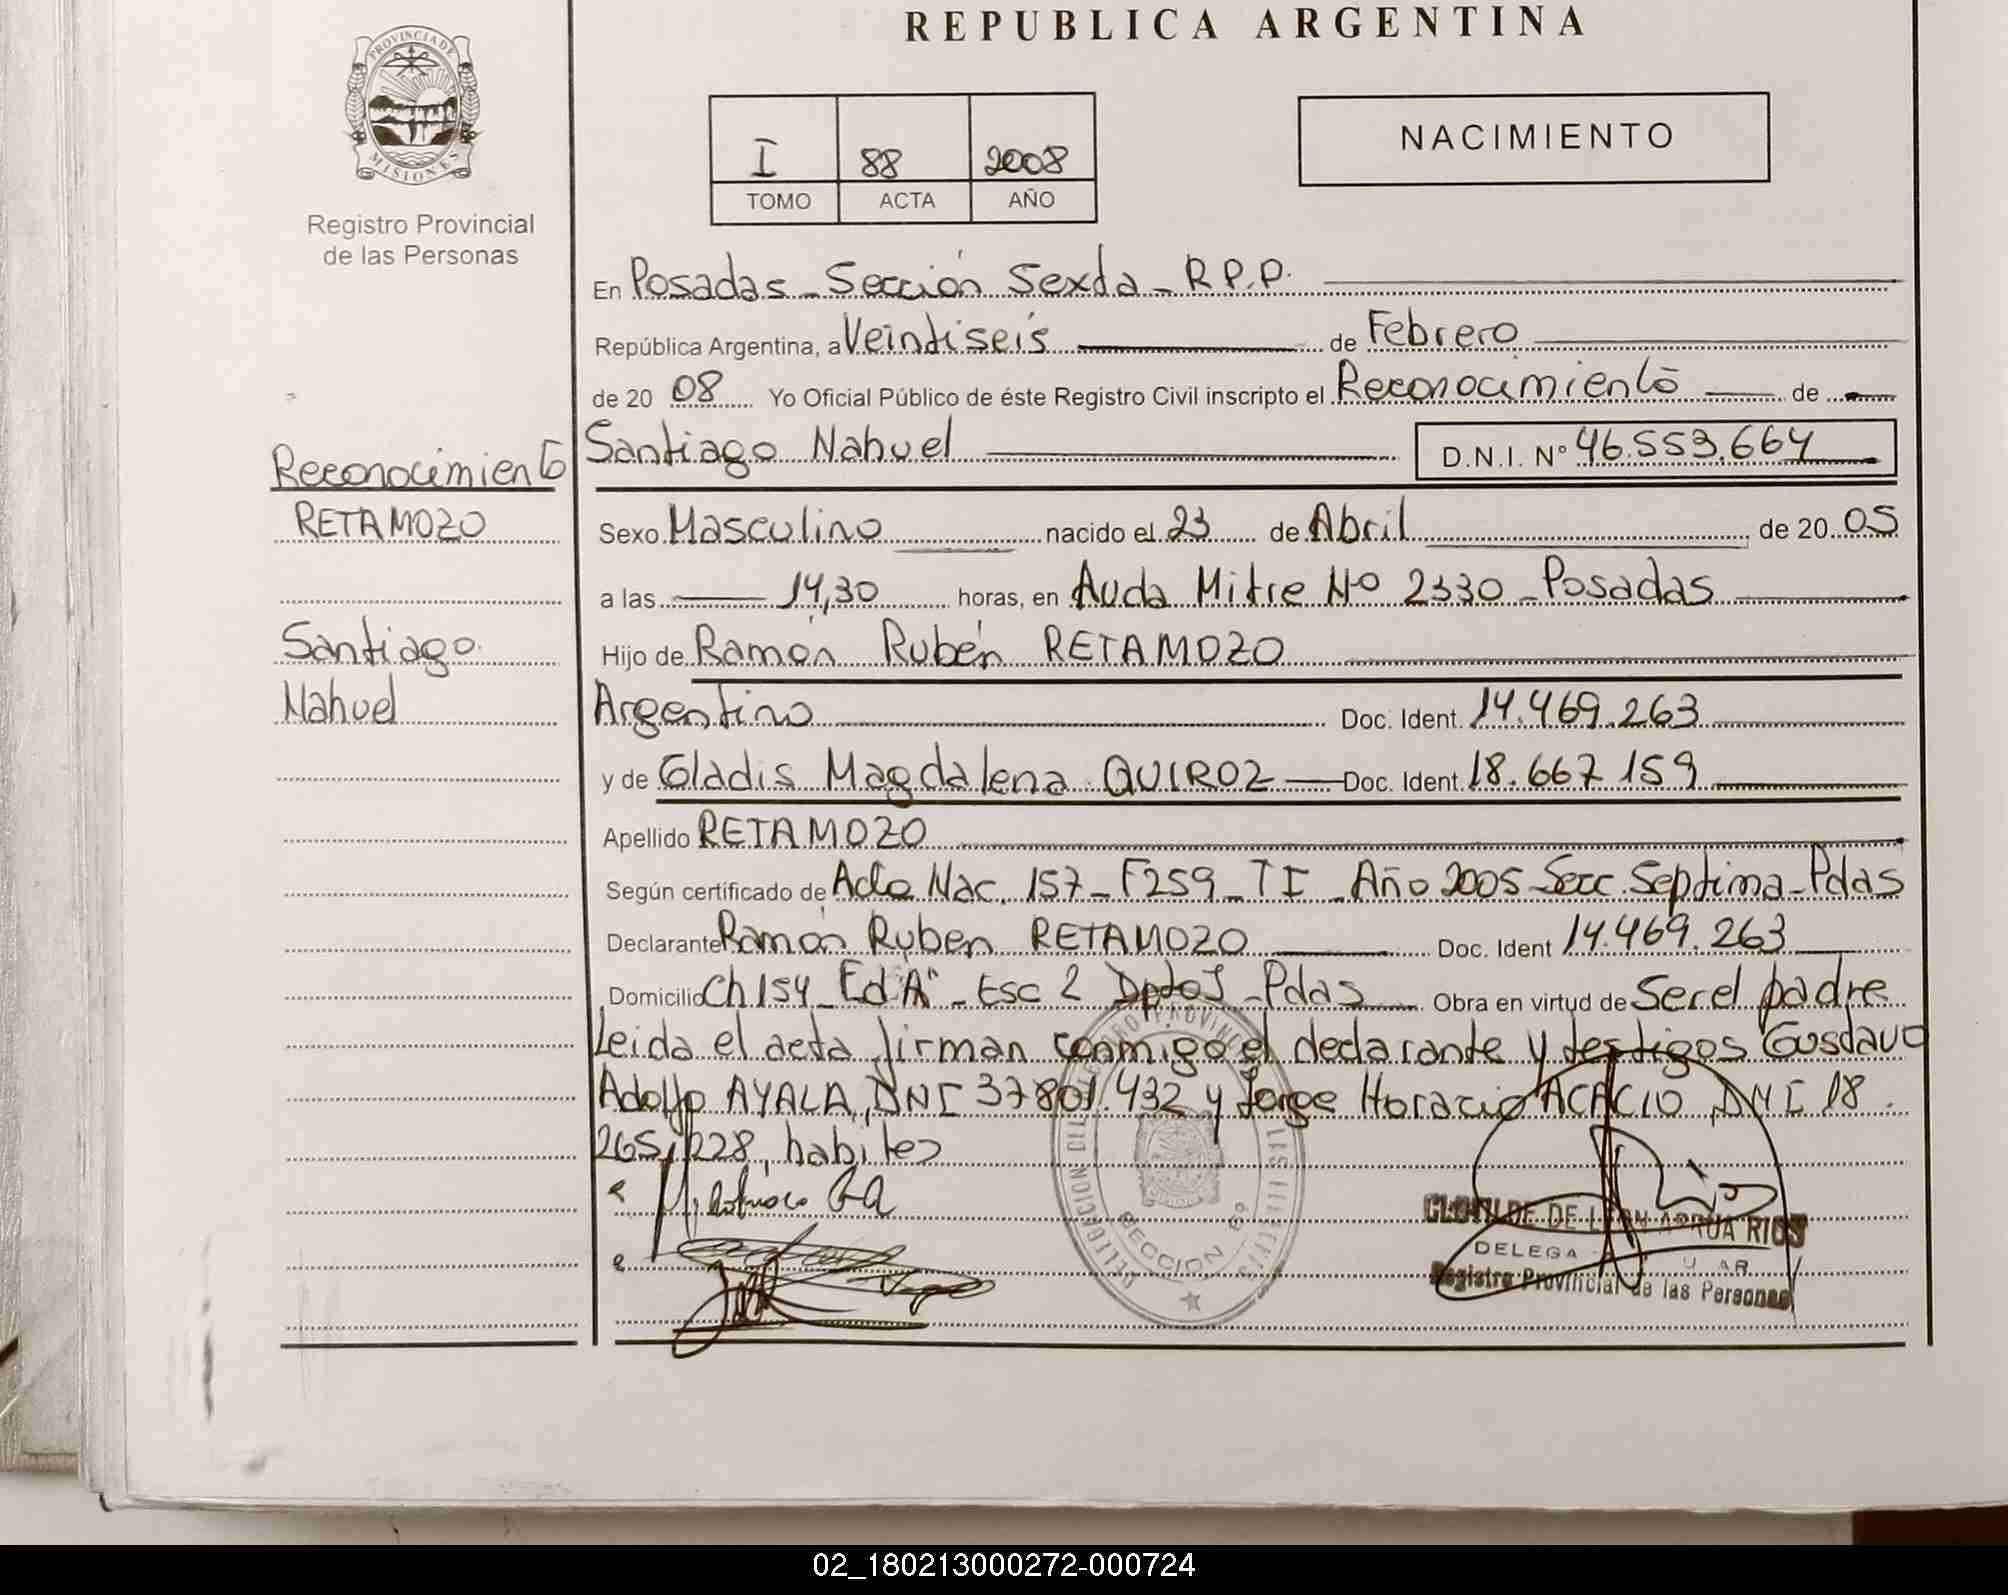 REPUBLICA ARGENTINA
PROVINCIA DE MISIONES
Registro Provincial
de las Personas
I 88 2008
TOMO ACTA AÑO
NACIMIENTO
En Posadas - Sección Sexta - R.P.P.
República Argentina, a Veintiseis de Febrero
de 20 08 Yo Oficial Público de éste Registro Civil inscripto el Reconocimiento de
Reconocimiento
RETAMOZO
Santiago
Nahuel
Santiago Nahuel D.N.I. Nº 46.553.664
Sexo Masculino nacido el 23 de Abril de 20 05
a las 14,30 horas, en Avda Mitre Nº 2330 - Posadas
Hijo de Ramón Rubén RETAMOZO
Argentino Doc. Ident. 14.469.263
y de Gladis Magdalena QUIROZ Doc. Ident. 18.667.159
Apellido RETAMOZO
Según certificado de Acta Nac. 157 - F259 - T I - Año 2005 Secc. Septima - Pdas
Declarante Ramón Ruben RETAMOZO Doc. Ident 14.469.263
Domicilio Ch 154 - Ed "A" - Esc 2 Dpto J - Pdas Obra en virtud de Ser el padre
Leida el acta firman conmigo el declarante y testigos Gustavo
Adolfo AYALA, DNI 37801.432 y Jorge Horacio ACACIO, DNI 18.
265.228, habiles
DELEGACION DEL REGISTRO PROVINCIAL DE LAS PERSONAS
SECCION 6º
CLOTILDE DE LEON ARRUA RIOS
DELEGA
Registro Provincial de las Personas
02_180213000272-000724